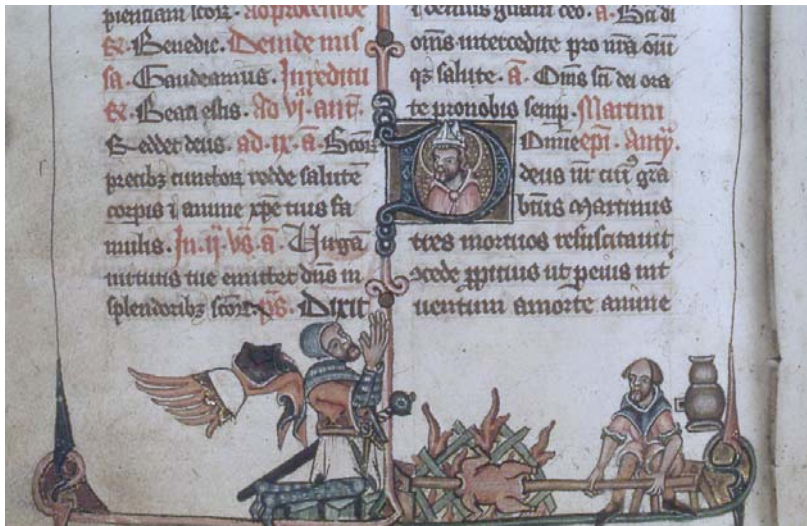 pientiam scor. ad processione
R. Benedic. Deinde mis
sa. Gaudeamus. In reditu
R. Beati estis. Ad vj. ant.
Sedet deus. ad ix. a. Scor
precibz cunctor redde salute
corpis i anime xpe tuis fa
mulis. In ij. vs. a. Virga
virtutis tue emittet dns in
splendoribz scor. ps. Dixit
a. Sci di
oms intercedite pro nra oim
qz salute. a. Oms sci dei ora
te pro nobis semp. Martini
Domie epi. anty.
deus nr cui gra
btus Martinus
tres mortuos resuscitavit
ut perius int
uentum a morte anime